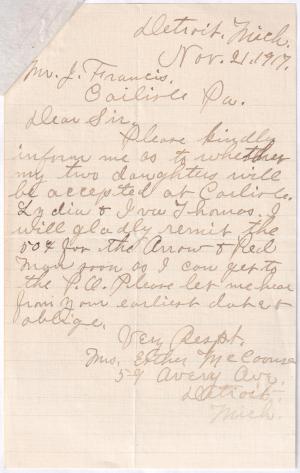 Detroit. Mich.
Nov. 21. 1917.
Mr. J. Francis.
Carlisle Pa.
Dear Sir.
Please kindly
inform me as to whether
my two daughters will
be accepted at Carlisle.
Lydia & Iva Thomas. I
will gladly remit the
50¢ for the Arrow & Red
Man soon as I can get to
the P.O. Please let me hear
from your earliest date &
oblige.
Very Respt.
Mrs. Esther McCoonse
59 Avery Ave.
Detroit.
Mich.